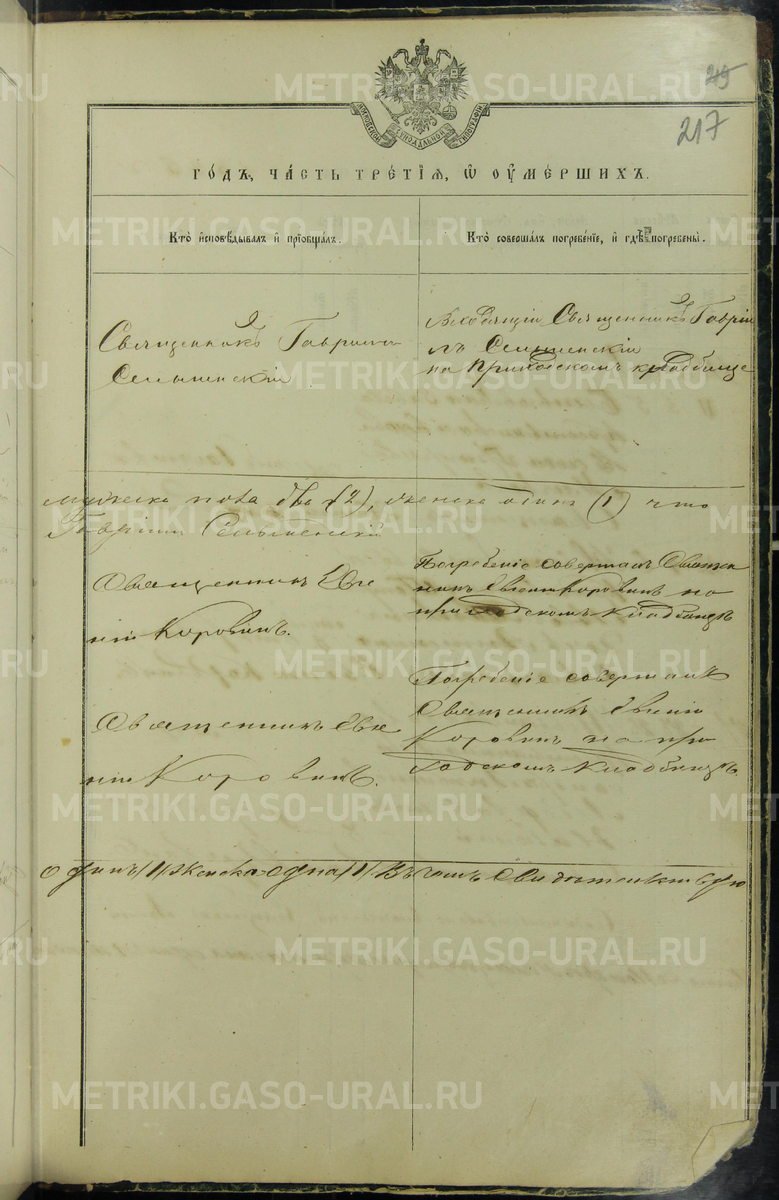 215
217
МОСКОВСКОЙ СѴНОДАЛЬНОЙ ТИПОГРАФІИ
ГО́ДЪ, ЧА́СТЬ ТРЕ́ТІѦ, Ѡ ОУ҆МЕ́РШИХЪ.
Кто̀ и҆сповѣ́дывалъ и҆ прїѡбща́лъ.
Кто̀ соверша́лъ погребе́нїе, и҆ гдѣ̀ погребены̀.
Священникъ Гавріилъ
Селыменскій
Священникъ Гаврі
илъ Селыменскій
на приходскомъ кладбище
мужеска пола два (2), женска одинъ (1) что
Гавріилъ
Священникъ Евге
ній Коровинъ.
Погребеніе совершалъ Священ
никъ Евгеній Коровинъ на
приходскомъ кладбищѣ
Священникъ Евге
ній Коровинъ.
Погребеніе совершалъ
Священникъ Евгеній
Коровинъ на при
ходскомъ кладбищѣ.
одинъ /1/ женска одна /1/ Въ чемъ
METRIKI.GASO-URAL.RU